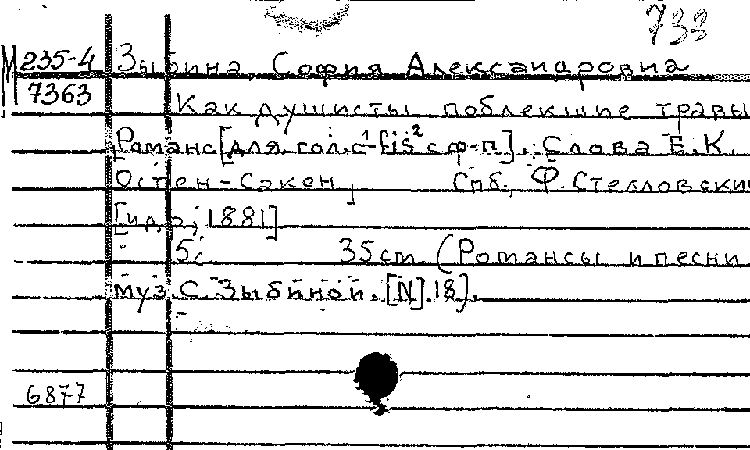 733
М 235-4 Зыбина, София Александровна
7363 Как душисты поблекшие травы
Романс [для гол. c¹-fis² с ф-п]. Слова Е.К.
Остен-Сакен, Спб., Ф. Стелловский
[ц.д., 1881]
5с. 35 cm. (Романсы и песни
муз. С. Зыбиной. [N] 18).
6877